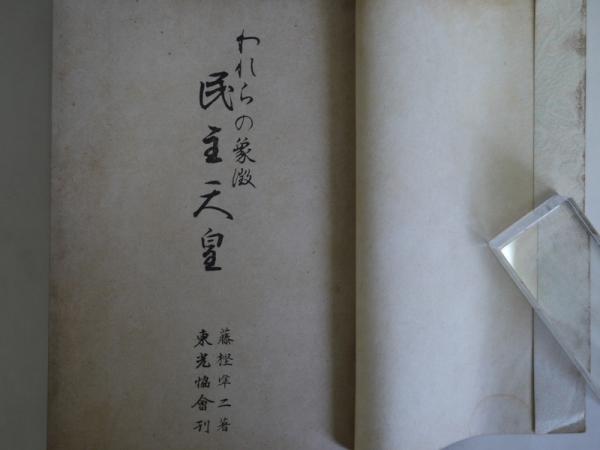 われらの象徴
民主天皇
藤樫準二著
東光協會刊